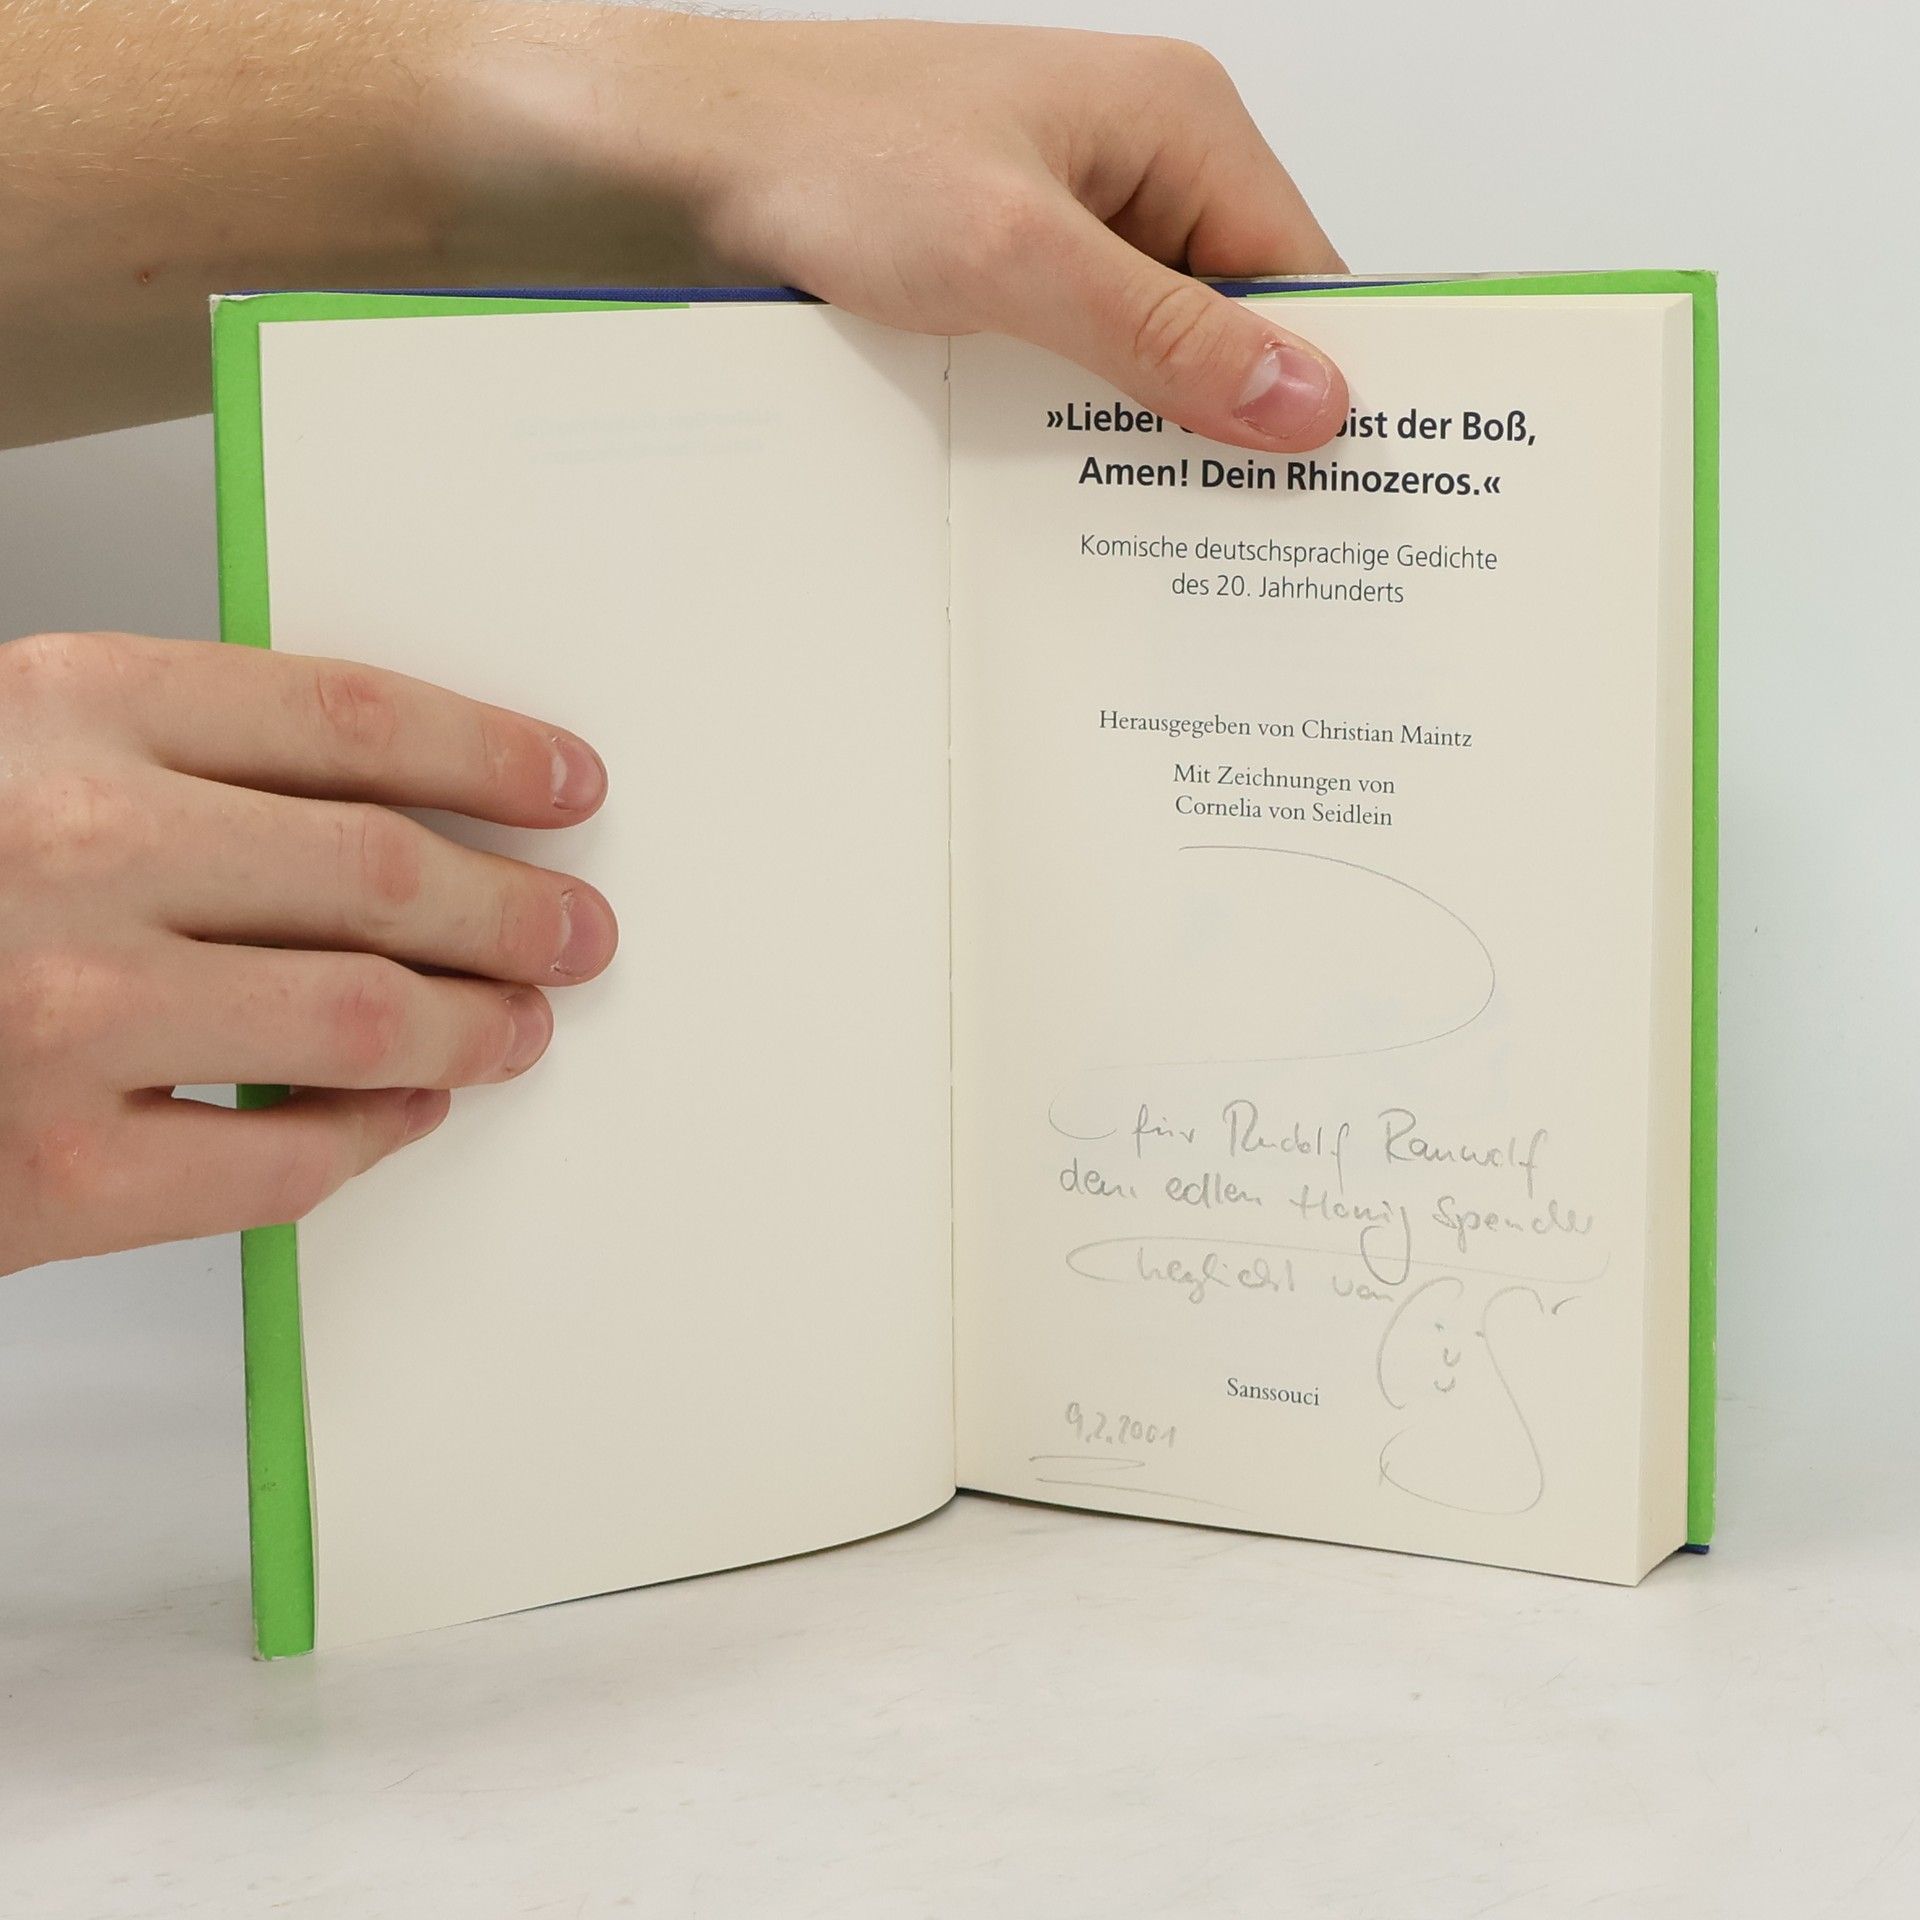 »Lieber bist der Boß,
Amen! Dein Rhinozeros.«
Komische deutschsprachige Gedichte
des 20. Jahrhunderts
Herausgegeben von Christian Maintz
Mit Zeichnungen von
Cornelia von Seidlein
für Rudolf Rauwolf
dem edlen Honig Spender
herzlichst von
Sanssouci
9.2.2001